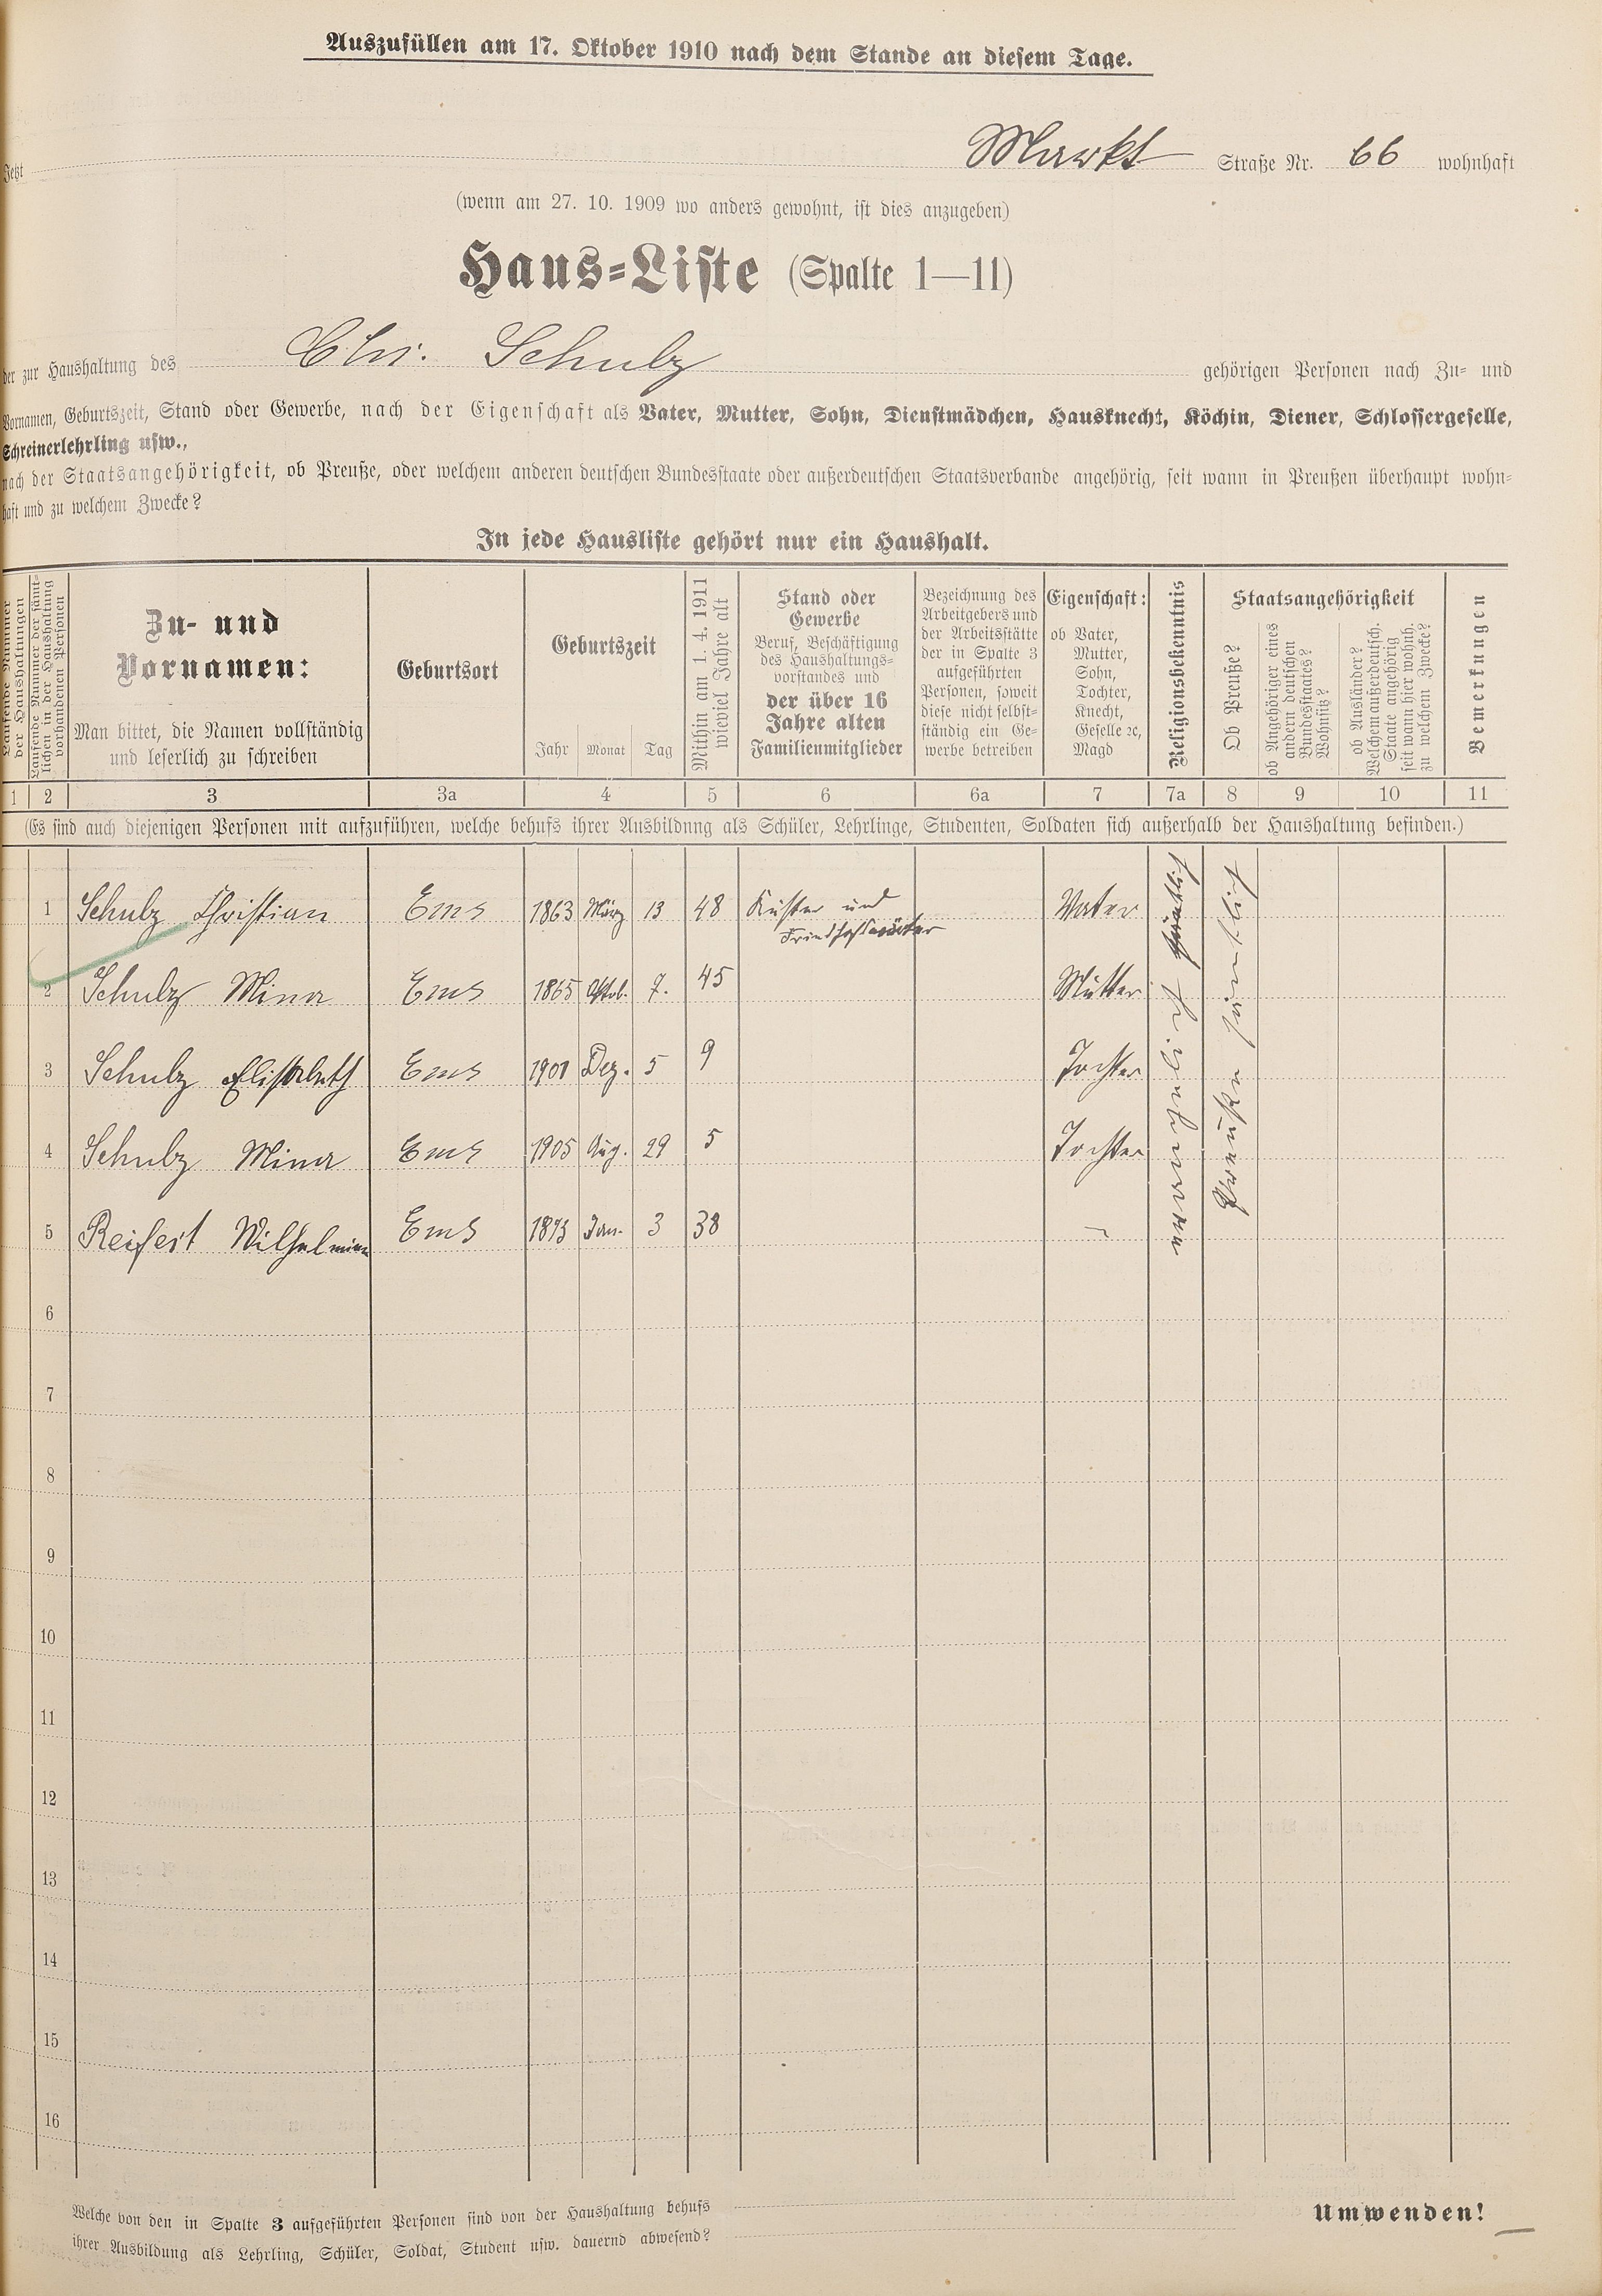 Auszufüllen am 17. Oktober 1910 nach dem Stande an diesem Tage.
Jetzt Markt Straße Nr. 66 wohnhaft
(wenn am 27. 10. 1909 wo anders gewohnt, ist dies anzugeben)
Haus-Liste (Spalte 1—11)
der zur Haushaltung des Chr. Schulz gehörigen Personen nach Zu- und
Vornamen, Geburtszeit, Stand oder Gewerbe, nach der Eigenschaft als Vater, Mutter, Sohn, Dienstmädchen, Hausknecht, Köchin, Diener, Schlossergeselle,
Schreinerlehrling usw.,
nach der Staatsangehörigkeit, ob Preuße, oder welchem anderen deutschen Bundesstaate oder außerdeutschen Staatsverbande angehörig, seit wann in Preußen überhaupt wohn-
haft und zu welchem Zwecke?
In jede Hausliste gehört nur ein Haushalt.
Laufende Nummer
der Haushaltungen
Laufende Nummer der sämt-
lichen in der Haushaltung
vorhandenen Personen
Zu- und
Vornamen:
Man bittet, die Namen vollständig
und leserlich zu schreiben
Geburtsort
Geburtszeit
Jahr Monat Tag
Mithin am 1. 4. 1911
wieviel Jahre alt
Stand oder
Gewerbe
Beruf, Beschäftigung
des Haushaltungs-
vorstandes und
der über 16
Jahre alten
Familienmitglieder
Bezeichnung des
Arbeitgebers und
der Arbeitsstätte
der in Spalte 3
aufgeführten
Personen, soweit
diese nicht selbst-
ständig ein Ge-
werbe betreiben
Eigenschaft:
ob Vater,
Mutter,
Sohn,
Tochter,
Knecht,
Geselle ꝛc,
Magd
Religionsbekenntnis
Staatsangehörigkeit
Ob Preuße?
ob Angehöriger eines
andern deutschen
Bundesstaates?
Wohnsitz?
ob Ausländer?
Welchem außerdeutsch.
Staate angehörig
seit wann hier wohnh.
zu welchem Zwecke?
Bemerkungen
1 2 3 3a 4 5 6 6a 7 7a 8 9 10 11
(Es sind auch diejenigen Personen mit aufzuführen, welche behufs ihrer Ausbildung als Schüler, Lehrlinge, Studenten, Soldaten sich außerhalb der Haushaltung befinden.)
1 Schulz Christian Ems 1863 März 13 48 Küster und Vater
Friedhofswärter
2 Schulz Mina Ems 1865 Oktob. 7. 45 Mutter
3 Schulz Elisabeth Ems 1901 Dez. 5 9 Tochter
4 Schulz Mina Ems 1905 Aug. 29 5 Tochter
5 Reifert Wilhelmine Ems 1873 Jan. 3 38
evangelisch sämtlich
Preuße sämtlich
6
7
8
9
10
11
12
13
14
15
16
Welche von den in Spalte 3 aufgeführten Personen sind von der Haushaltung behufs
ihrer Ausbildung als Lehrling, Schüler, Soldat, Student usw. dauernd abwesend?
Umwenden!